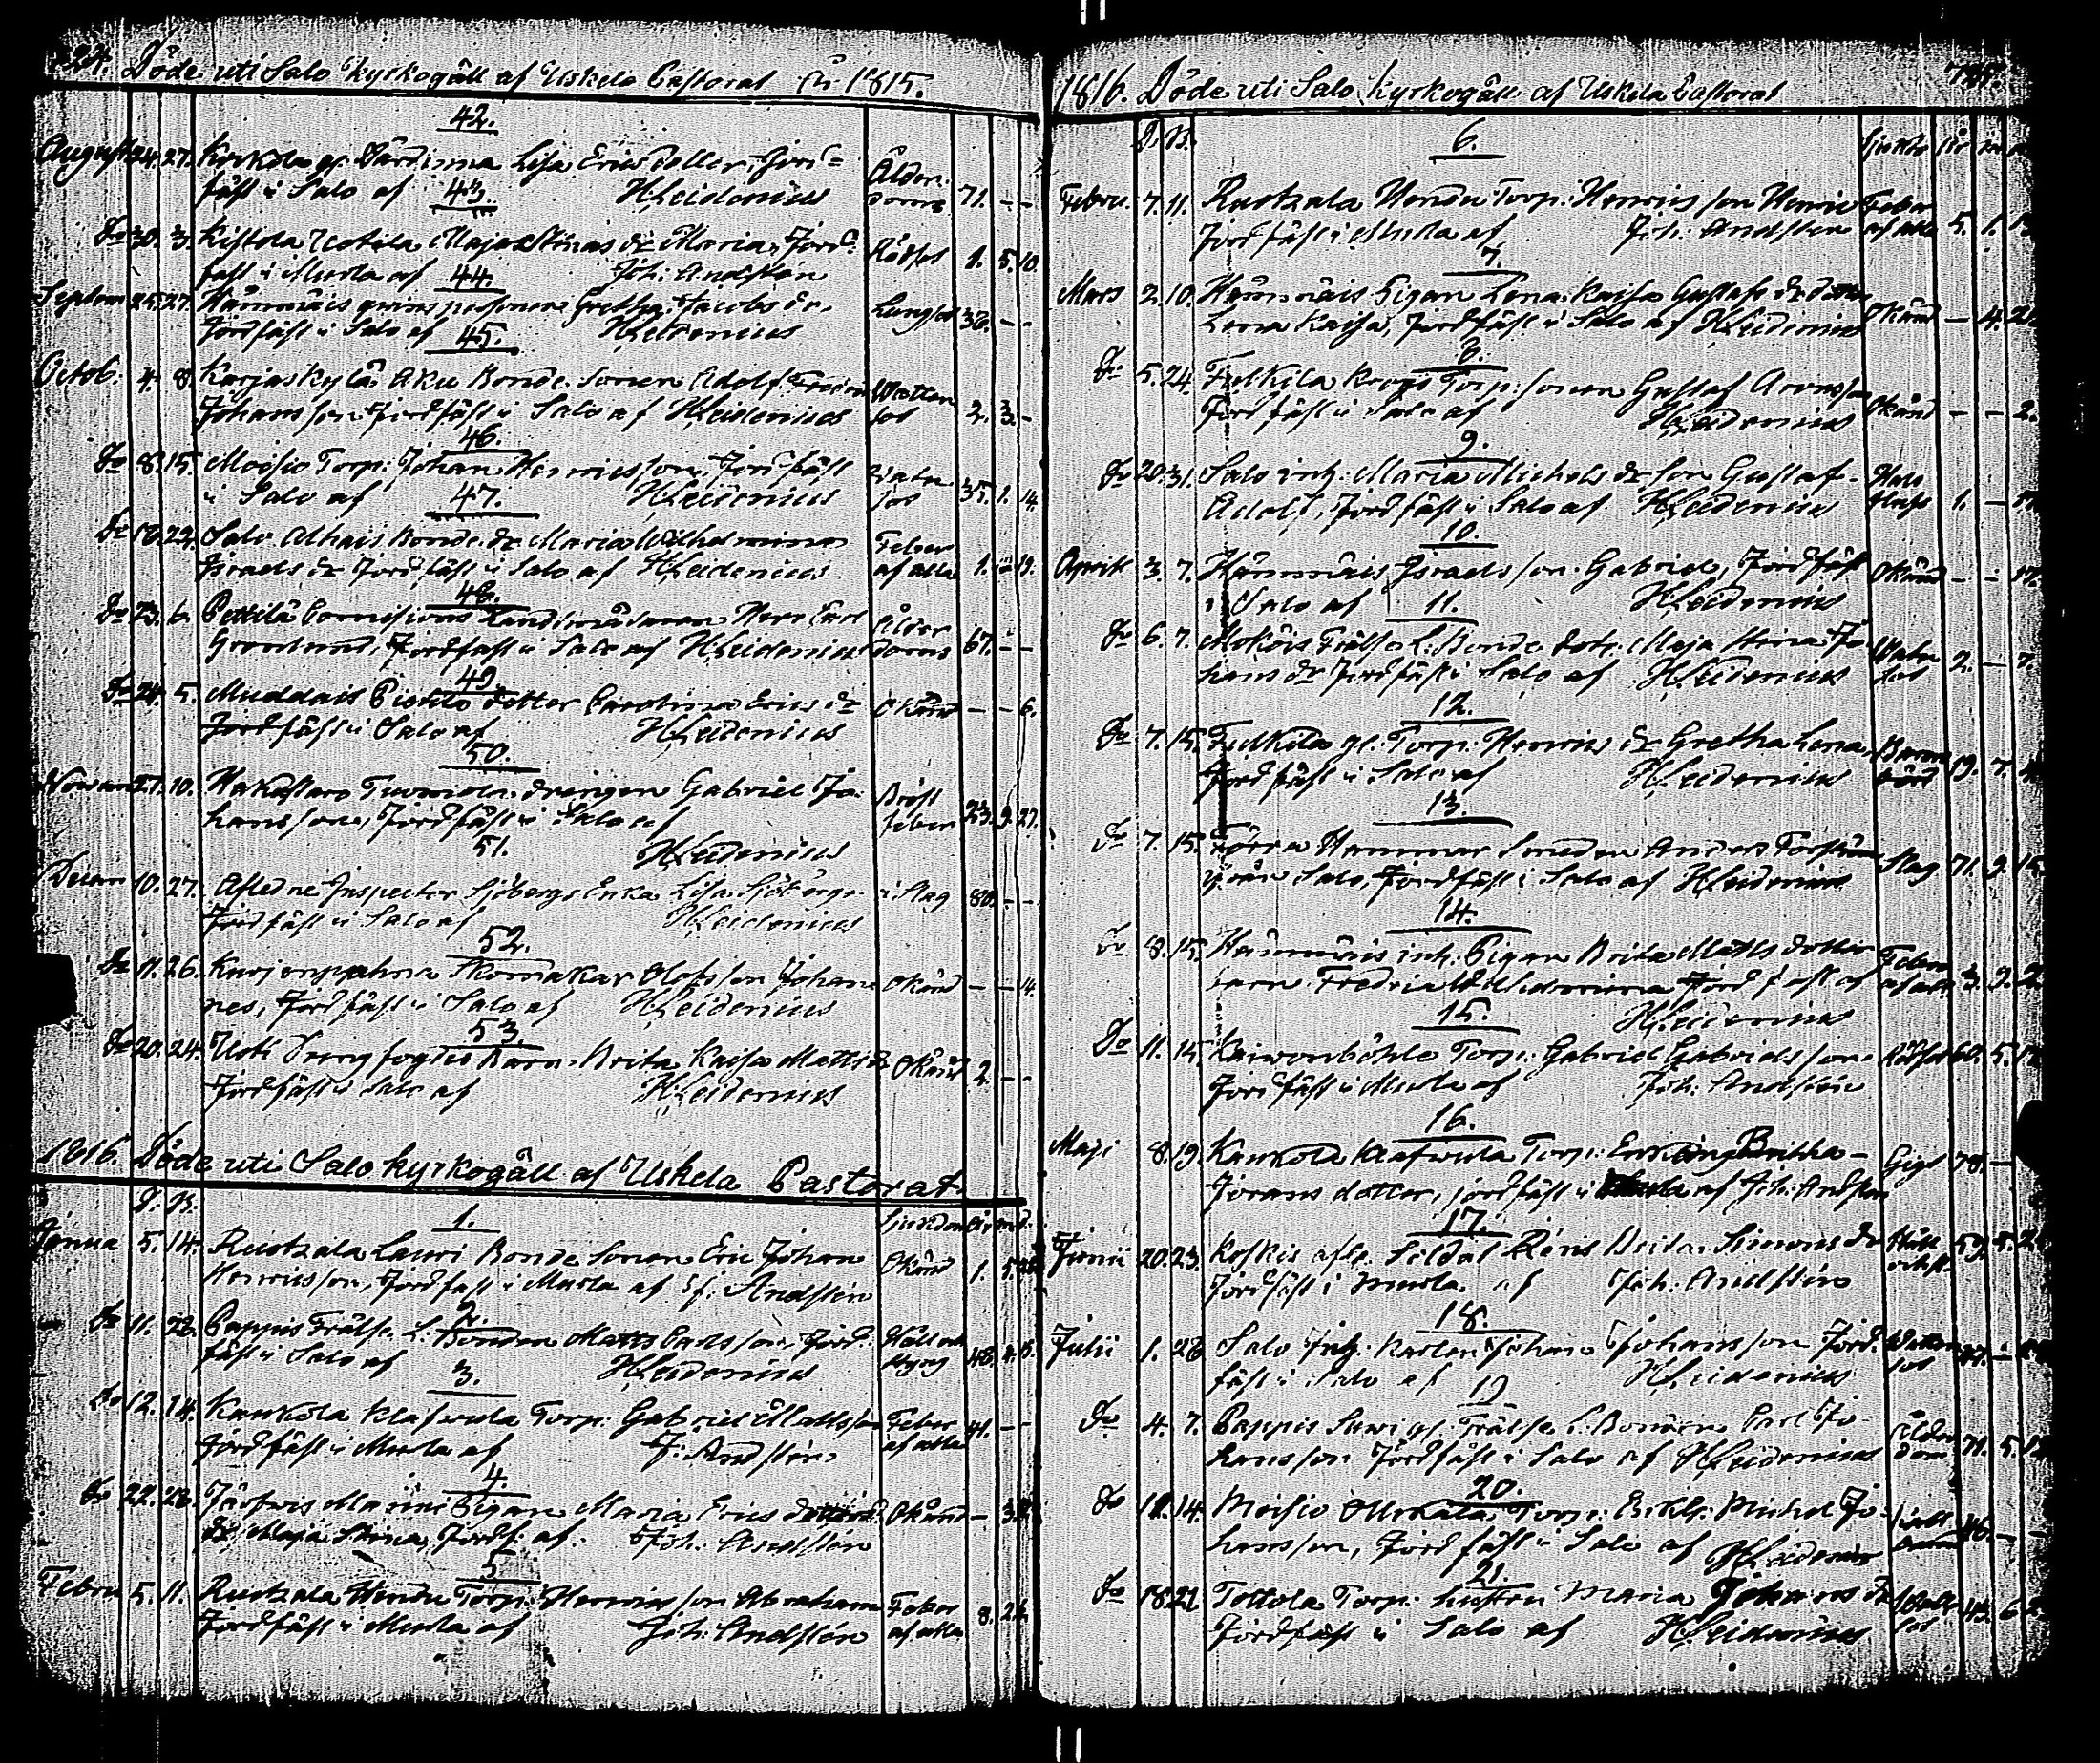 Döde uti Salo kyrkogäll af Uskela Pastorat År 1815.
42.
August 24. 27. gl. Lisa Erics dotter, Jord=
fäst i Salo af HLeidenius Ålderdom 71. - -
43.
Do 30. 3. Kistola Uotila Maja Stinas dr Maria, Jord=
fäst i Murla af Joh: Andstén Rötsot 1. 5. 10.
44.
Septem 25. 27. Hämmäis Gretha Jacobs dr,
Jordfäst i Salo af HLeidenius Lungsot 38. - -
45.
Octob. 4. 8. Karjaskylä Aku Bonde Sonen Adolf
Johansson Jordfäst i Salo af HLeidenius Wattusot 2. 3. -
46.
Do 8. 15. Moisio Torp: Johan Henricsson, Jordfäst
i Salo af HLeidenius 35. 1. 14.
47.
Do 18. 22. Salo Althais Bonde dr Maria Wilhelmina
Israels dr Jordfäst i Salo af HLeidenius Feber af alla 1. - 19.
48.
Do 23. 6. Pettilä Commissions Landtmätaren Herr Carl
Jordfäst i Salo af HLeidenius Ålderdom 67. - -
49.
Do 24. 5. Muddais dotter Carolina Erics dr
Jordfäst i Salo af HLeidenius Okänd - - 6.
50.
Novem 27. 10. Hakastaro Tuomola drängen Gabriel Jo-
hansson, Jordfäst i Salo af HLeidenius Bröstfeber 23. 9. 27.
51.
Decem 10. 27. Afledne Inspector Sjöbergs Enka Lisa Sjöberg
Jordfäst i Salo af HLeidenius Slag 80. - -
52.
Do 11. 26. Skomakar Olofsson Johan-
nes, Jordfäst i Salo af HLeidenius Okänd - - 14.
53.
Do 20. 24. Barn Brita Kaisa Matts dr
Jordfäst i Salo af HLeidenius Okänd 2. - -
1816. Döde uti Salo kyrkogäll af Uskela Pastorat
D. B.
1.
Janua 5. 14. Ruotzala Lauri Bonde Sonen Eric Johan
Henricsson, Jordfäst i Murla af J: Andstén Okänd 1.
2.
Do 11. 22. Pappis Frälse L: Bonden Matts Carlsson, Jord-
fäst i Salo af HLeidenius Håll och Styng 48.
3.
Do 12. 14. Kaukola Klafwula Torp: Gabriel Mattsson
Jordfäst i Murla af J: Andstén Feber af alla 41. - -
4.
Do 22. 28. Pigan Maria Erics dotters
dr Maja Stina, Jordf: af Joh: Andstén Okänd - 3.
5.
Febru 5. 11. Ruotzala Hendu Torp: Henrics son Abraham
Jordfäst i Murla af Joh: Andstén Feber af alla 8.
1816. Döde uti Salo kyrkogäll af Uskela Pastorat
D. B.
6.
Febru. 7. 11. Ruotzala Hendu Torp: Henrics son Henric
Jordfäst i Murla af Joh: Andstén Feber af alla 5. 1.
7.
Mars 2. 10. Hämmäis Pigan Lena Kaisa Gustafs dr dotter
Lena Kaisa, Jordfäst i Salo af HLeidenius Okänd - 4.
8.
Do 5. 24. Torp: sonen Gustaf Aronsson
Jordfäst i Salo af HLeidenius Okänd - - 2.
9.
Do 20. 31. Salo inh: Maria Michels dr Son Gustaf
Adolf, Jordfäst i Salo af HLeidenius 1. -
10.
April 3. 7. Hämmäis Israels son Gabriel, Jordfäst
i Salo af HLeidenius Okänd - -
11.
Do 6. 7. Frälse L: Bonde dotr: Maja Stina Jo-
hans dr Jordfäst i Salo af HLeidenius 2. - 7.
12.
Do 7. 15. gl: Torp: Henrics dr Gretha Lena
Jordfäst i Salo af HLeidenius Barnsbörd 19. 7.
13.
Do 7. 15. Förra Hammar Smeden Anders
ifrån Salo, Jordfäst i Salo af HLeidenius Slag 71. 9.
14.
Do 8. 15. Hämmäis inh: Pigan Brita Matts dotter
barn Fredrica Wilhelmina Jordfäst af HLeidenius Feber af alla 3. 9.
15.
Do 11. 15. Torp: Gabriel Gabrielsson
Jordfäst i Murla af Joh: Andstén Rötsot 60. 5.
16.
Maji 8. 19. Kaukola Klafwula Torp: Enkan Britha
Jörans dotter, jordfäst i Murla af Joh: Andstén Gigt 78. -
17.
Junii 20. 23. Koskis Brita Simons dr
Jordfäst i Murla af Joh: Andstén 59. 5.
18.
Julii 1. 28 Salo Inh: Karlen Johan Johansson Jord-
fäst i Salo af HLeidenius
19
Do 4. 7. Pappis Frälse L: Bonden Carl Jo-
hansson Jordfäst i Salo af HLeidenius Ålderdom 71. 5.
20.
Do 11. 14. Moisio Torp: Enkl: Michel Jo-
hansson, Jordfäst i Salo af HLeidenius 46. - -
21.
Do 18. 21 Tottola Torp: hustru Maria Johans dr
Jordfäst i Salo af HLeidenius